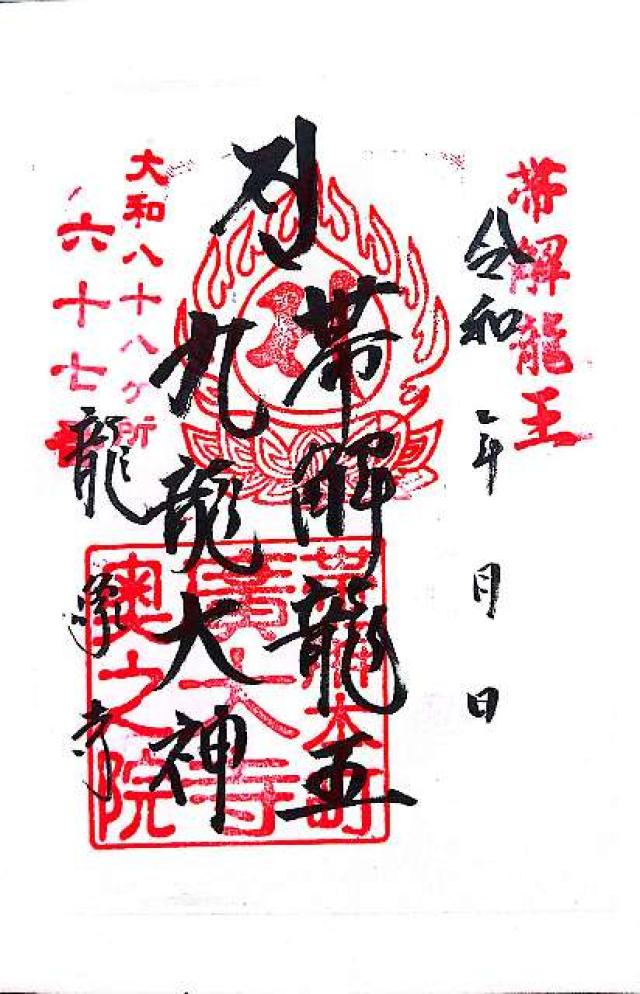 帯解龍王
令和 年 月 日
帯解龍王
九龍大神
大和八十八ヶ所
六十七番
龍象寺
帯解本町
廣大寺
奥之院